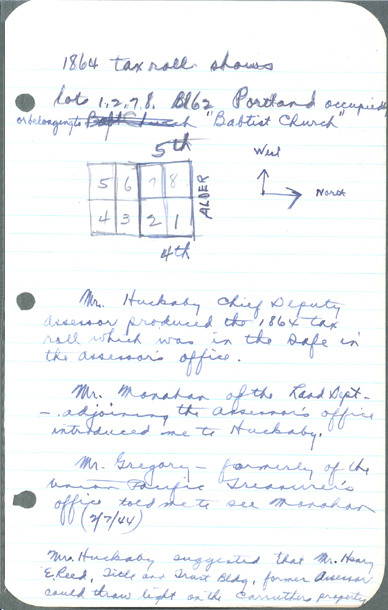 1864 tax roll shows
lots 1,2,7,8. Bl 62 Portland occupied by
or belonging to Bapt Church "Babtist Church"
5th
West
North
5 6 7 8
4 3 2 1
ALDER
4th
Mr. Huckaby Chief Deputy
assessor produced the 1864 tax
roll which was in the safe in
the assessor's office.
Mr. Monahan of the Land Dept -
- adjoining the assessor's office
introduced me to Huckaby.
Mr. Gregory - formerly of the
Union Pacific Treasurer's
office told me to see Monahan
(2/7/44)
Mr. Huckaby suggested that Mr. Henry
E. Reed, Title and Trust Bldg, former Assessor
could throw light on the Carruthers property